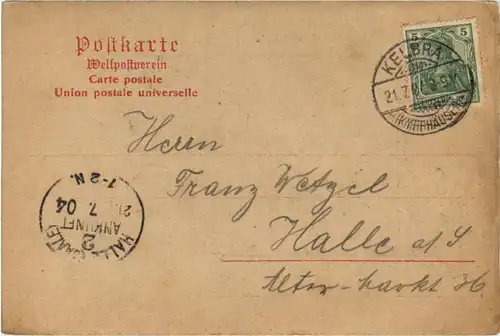 Postkarte
Weltpostverein
Carte postale
Union postale universelle
5 5
KELBRA
21.7.
(KYFFHÄUSER)
Herrn
Franz Wetzel
Halle a/S
Altermarkt 36
HALLE (SAALE)
ANKUNFT
2
7 04
1-2 N.